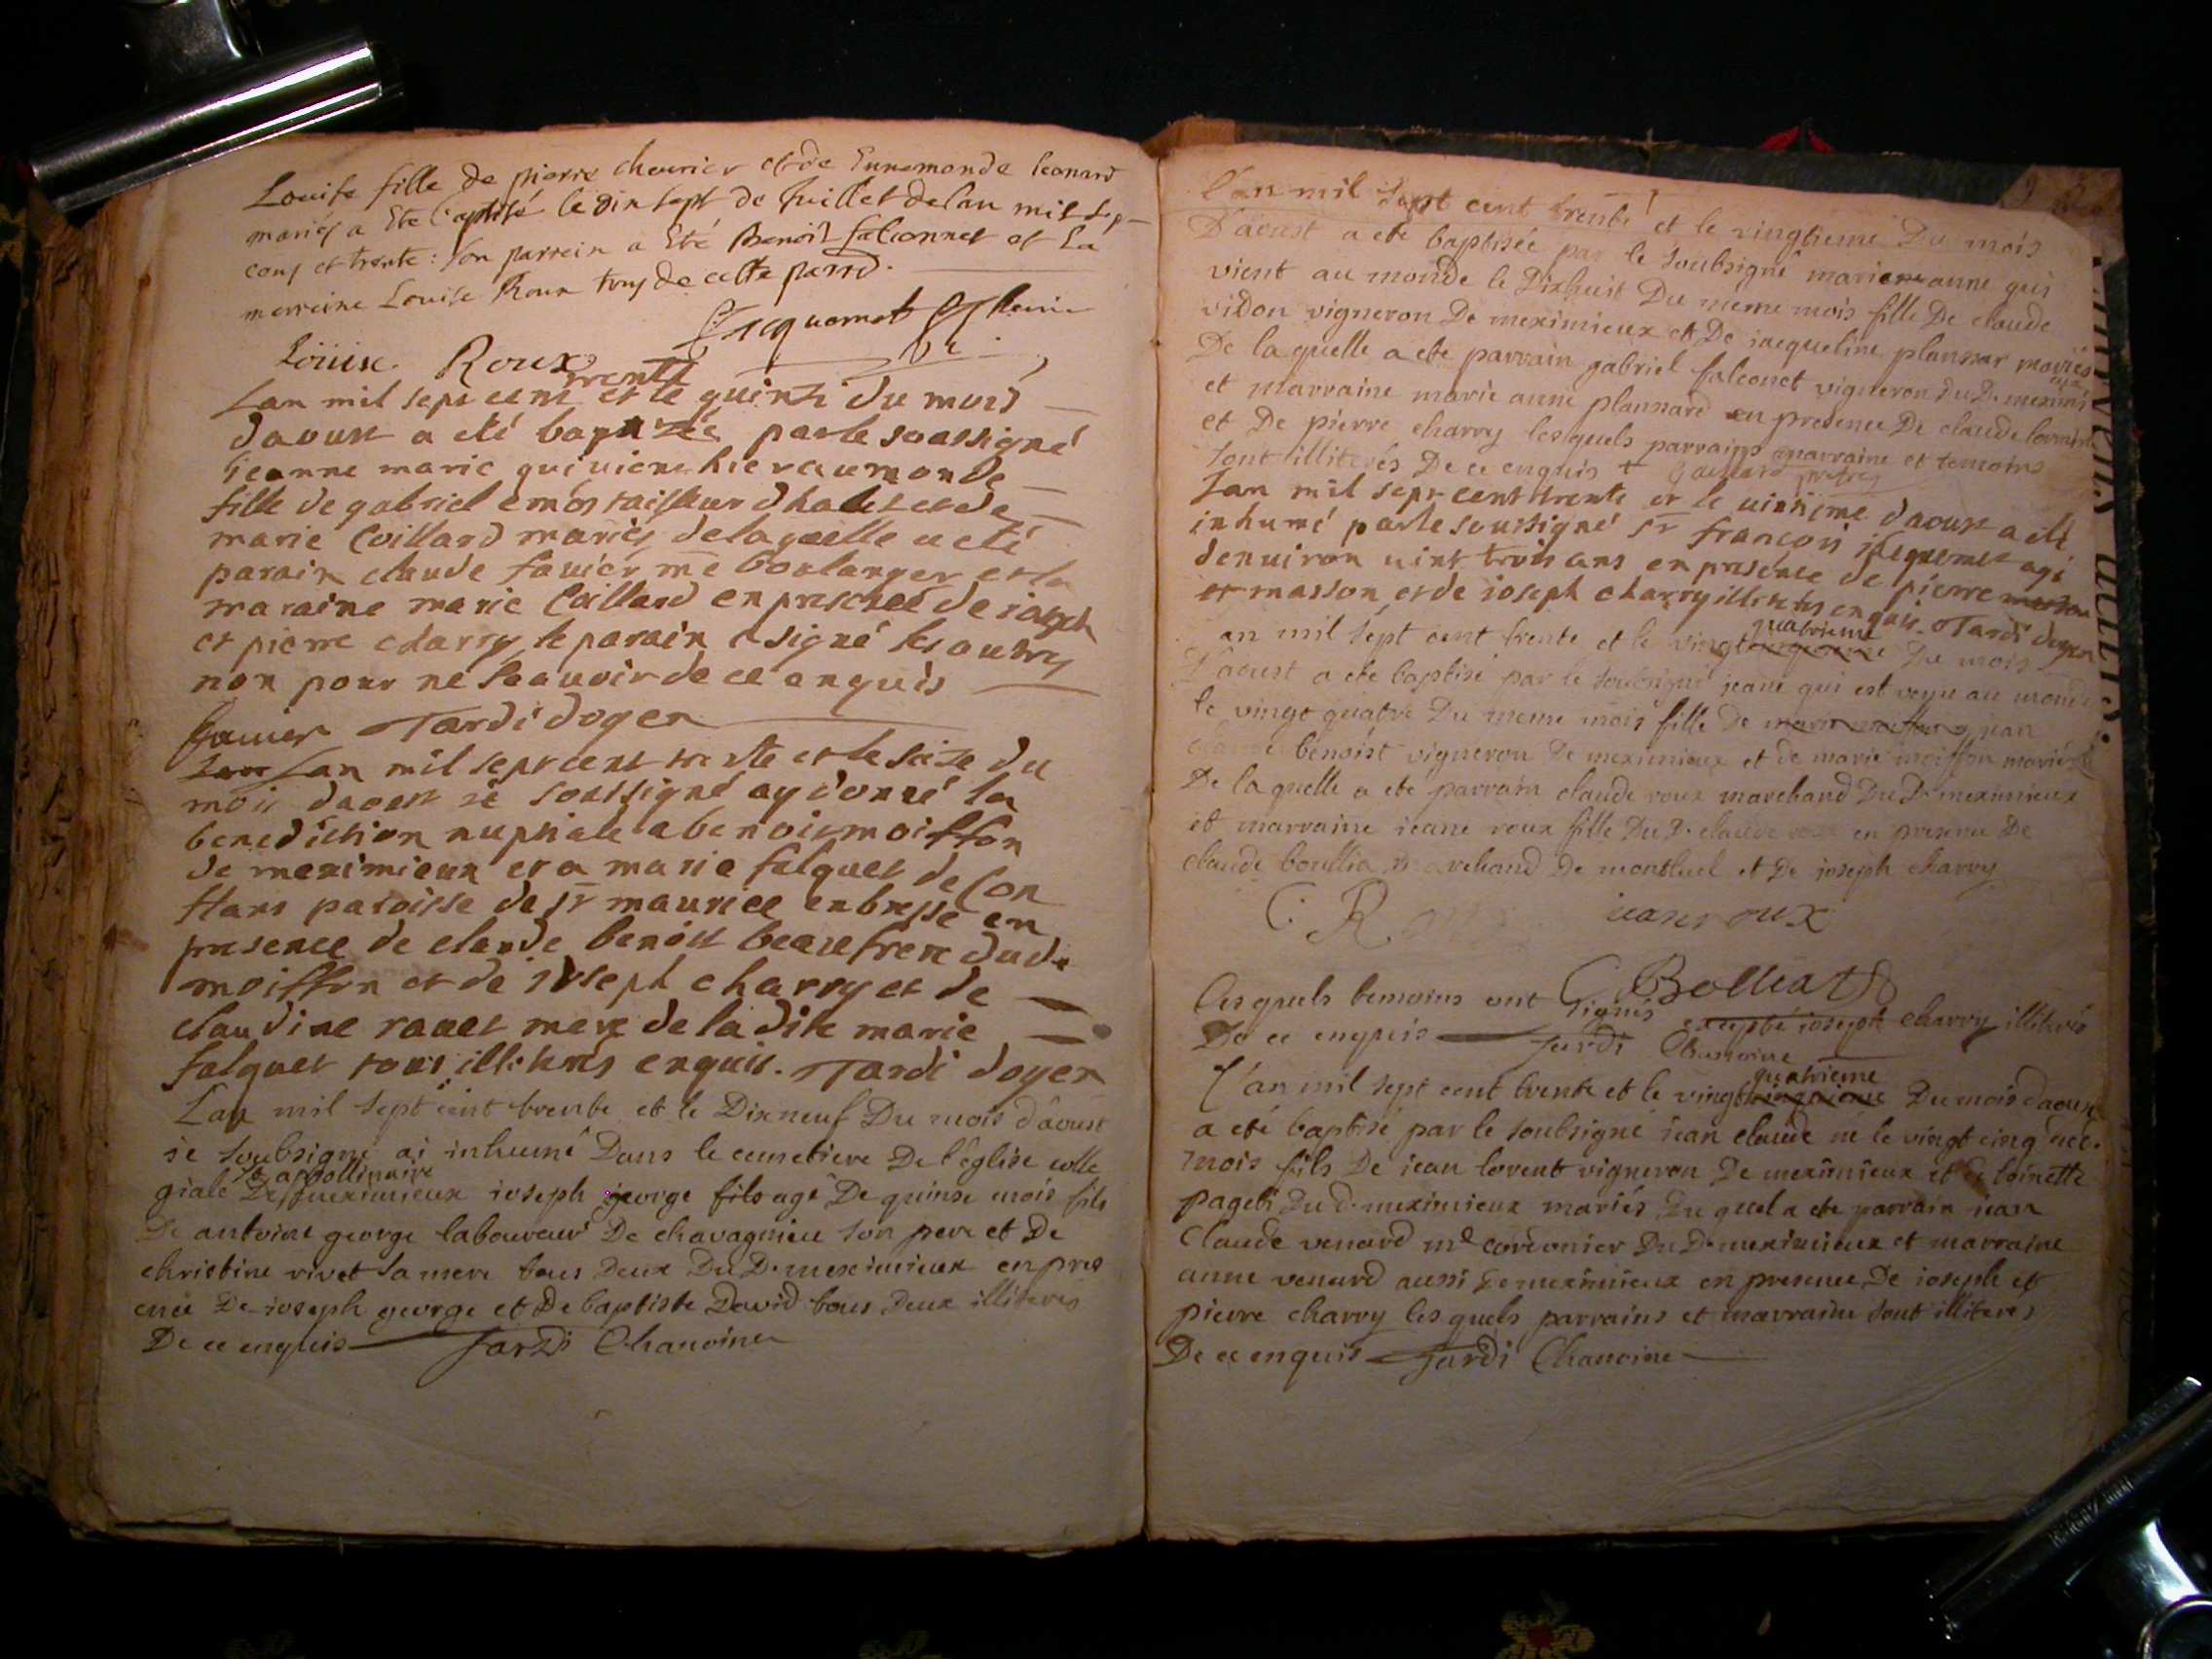 Louise fille de pierre chevrier et de Ennemonde leonard
mariés a Ete baptisé le dix sept de Juillet de lan mil sep
cens et trente : son parrein a Eté Benoit falconnet et La
marreine Louise Roux tous de cette parr.
Jacquemet
Loüise Roux
trente
Lan mil sept cent et le quinzi du mois
daoust a eté baptizée par le soassigné
jeanne marie qui vient hier au monde
fille de gabriel emos tailleur dhabet et de
marie Coillard mariés de laquelle a eté
parain claude favier me boulanger et la
maraine marie Coillard en presence de joseph
et pierre charry le parain a signé les autres
non pour ne scauoir de ce enquis
favier Tardi doyen
Lan mil sept cent trente et le seize du
mois daoust je soussigné ay donné la
benediction nuptiale a benoit moisson
de meximieux et a marie falquet de Con
stans paroisse de st maurice en bresse en
presence de claude benoist beaufrere dud.
moisson et de joseph charry et de
claudine rauet mere de la dite marie
falquet tous illiterés enquis. Tardi doyen
Lan mil sept cent trente et le Dixneuf Du mois d'aoust
je soubsigné ai inhumé Dans le cemetiere De l'église colle
st appollinaire
giale De meximieux joseph george fils agé De quinse mois fils
De antoine george laboureur De chavagnieu son pere et De
christine rivet sa mere tous Deux Du D. meximieux en pres
ence De joseph george et De baptiste David tous Deux illiterés
De ce enquis Jardi Chanoine
L'an mil sept cent trente et le vingtieme Du mois
D'aoust a ete baptisée par le soubsigné marie anne qui
vient au monde le Dixhuit Du meme mois fille De claude
vidon vigneron De meximieux et De jacqueline plansar mariés
De laquelle a ete parrain gabriel falconet vigneron du D. meximieux
et marraine marie anne plansard en presence De claude
et De pierre charry lesquels parrains marraine et temoins
sont illiterés De ce enquis
Lan mil sept cent trente et le uintieme daoust a eté
inhumé par le soussigné sr francois jaquemet agé
denuiron uint trois ans en presence de pierre
masson et de joseph charry illiterés enquis. Tardi doyen
quatrieme
an mil sept cent trente et le vingt Du mois
D'aoust a ete baptisé par le soubsigné jeane qui est venu au monde
le vingt quatre Du meme mois fille De jean
claude benoist vigneron De meximieux et de marie moisson mariés
De laquelle a ete parrain claude roux marchand Du D. meximieux
et marraine jeane roux fille Du D. claude roux en presence De
claude boullia marchand De montluel et De joseph charry
C. Roux jeane roux
C Bolliat
lesquels temoins ont signés excepté joseph charry illiterés
De ce enquis Jardi Chanoine
quatrieme
L'an mil sept cent trente et le vingt Du mois daoust
a eté baptisé par le soubsigné jean claude né le vingt cinq
mois fils De jean lorent vigneron De meximieux et De toinette
paget Du d. meximieux mariés Du quel a ete parrain jean
Claude venard me cordonier Du D. meximieux et marraine
anne venard aussi De meximieux en presence De joseph et
pierre charry lesquels parrains et marraine sont illiterés
De ce enquis Jardi Chanoine